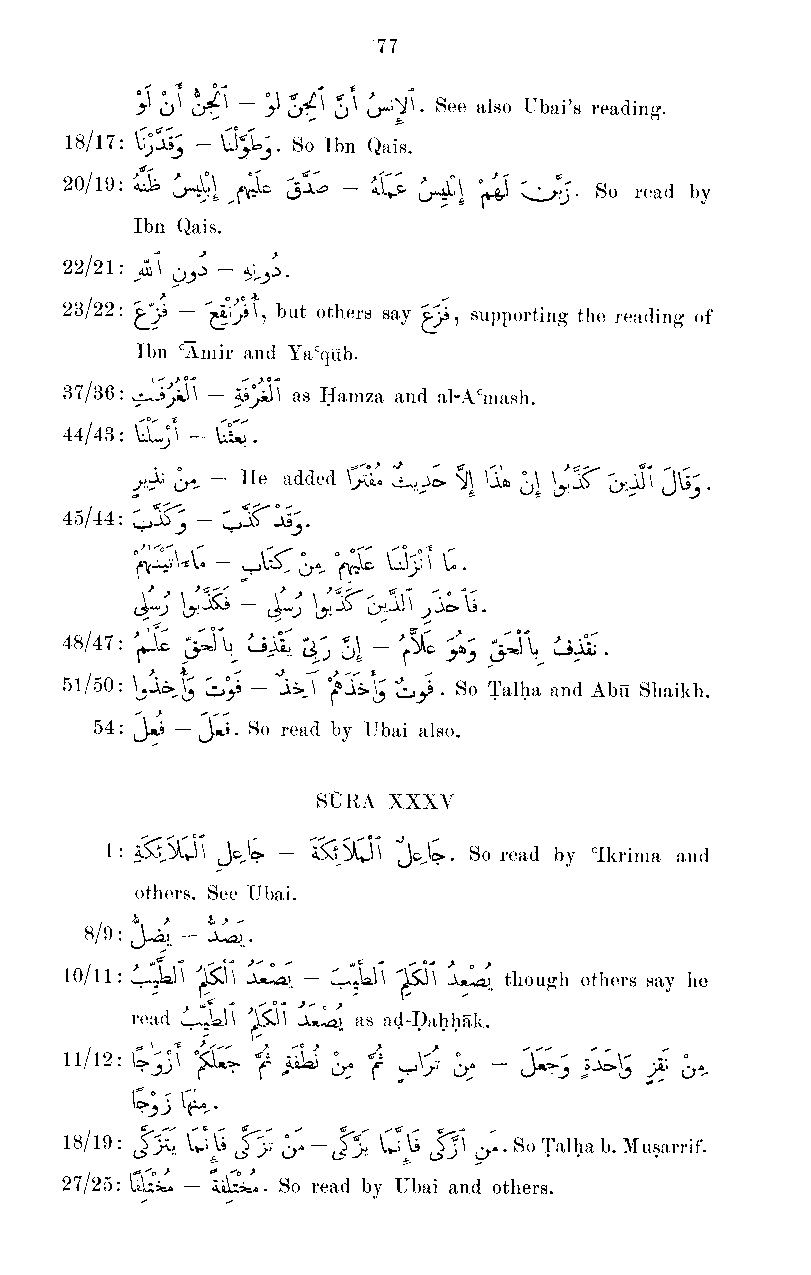 77
ٱلْجِنُّ أَنْ لَوْ — ٱلْإِنسُ أَنَّ ٱلْجِنَّ لَوْ. See also Ubai's reading.
18/17: وَقَدَّرْنَا — وَطَوَّلْنَا. So Ibn Qais.
20/19: صَدَّقَ عَلَيْهِمْ إِبْلِيسُ ظَنَّهُ — زَيَّنَ لَهُمْ إِبْلِيسُ عَمَلَهُ. So read by
Ibn Qais.
22/21: دُونِ ٱللّٰهِ — دُونِهِ.
23/22: فُزِّعَ — ٱفْرُنْقِعَ, but others say فَزَّعَ, supporting the reading of
Ibn ʿĀmir and Yaʿqūb.
37/36: ٱلْغُرُفَٰتِ — ٱلْغُرْفَةِ as Ḥamza and al-Aʿmash.
44/43: أَرْسَلْنَا — بَعَثْنَا.
مِنْ نَذِيرٍ — He added وَقَالَ ٱلَّذِينَ كَذَّبُوا إِنْ هٰذَا إِلَّا حَدِيثٌ مُفْتَرًا.
45/44: وَكَذَّبَ — وَقَدْ كَذَّبَ.
مَاءَاتَيْنَٰهُمْ — مَا أَنْزَلْنَا عَلَيْهِمْ مِنْ كِتَابٍ.
فَكَذَّبُوا رُسُلِي — فَٱحْذَرِ ٱلَّذِينَ كَذَّبُوا رُسُلِي.
48/47: إِنَّ رَبِّي يَقْذِفُ بِٱلْحَقِّ عَلَّٰمُ — نَقْذِفُ بِٱلْحَقِّ وَهُوَ عَلَّامُ.
51/50: فَوْتَ وَأُخِذُوا — فَوْتٌ وَأَخَذَهُمْ آخِذٌ. So Ṭalḥa and Abū Shaikh.
54: فُعِلَ — فَعَلَ. So read by Ubai also.
SŪRA XXXV
1: جَاعِلِ ٱلْمَلَائِكَةِ — جَاعِلٌ ٱلْمَلَائِكَةَ. So read by ʿIkrima and
others. See Ubai.
8/9: يُضِلُّ — يَصُدُّ.
10/11: يَصْعَدُ ٱلْكَلِمُ ٱلطَّيِّبُ — يُصْعِدُ ٱلْكَلِمَ ٱلطَّيِّبَ though others say he
read يُصْعَدُ ٱلْكَلِمُ ٱلطَّيِّبُ as aḍ-Ḍaḥḥāk.
11/12: مِنْ تُرَابٍ ثُمَّ مِنْ نُطْفَةٍ ثُمَّ جَعَلَكُمْ أَزْوَٰجًا — مِنْ نَفْسٍ وَاحِدَةٍ وَجَعَلَ
مِنْهَا زَوْجًا.
18/19: مَنْ تَزَكَّى فَإِنَّمَا يَتَزَكَّى — مَنِ ٱزَّكَّى فَإِنَّمَا يَزَّكَّى. So Ṭalḥa b. Muṣarrif.
27/25: مُخْتَلِفًا — مُخْتَلِفَةً. So read by Ubai and others.